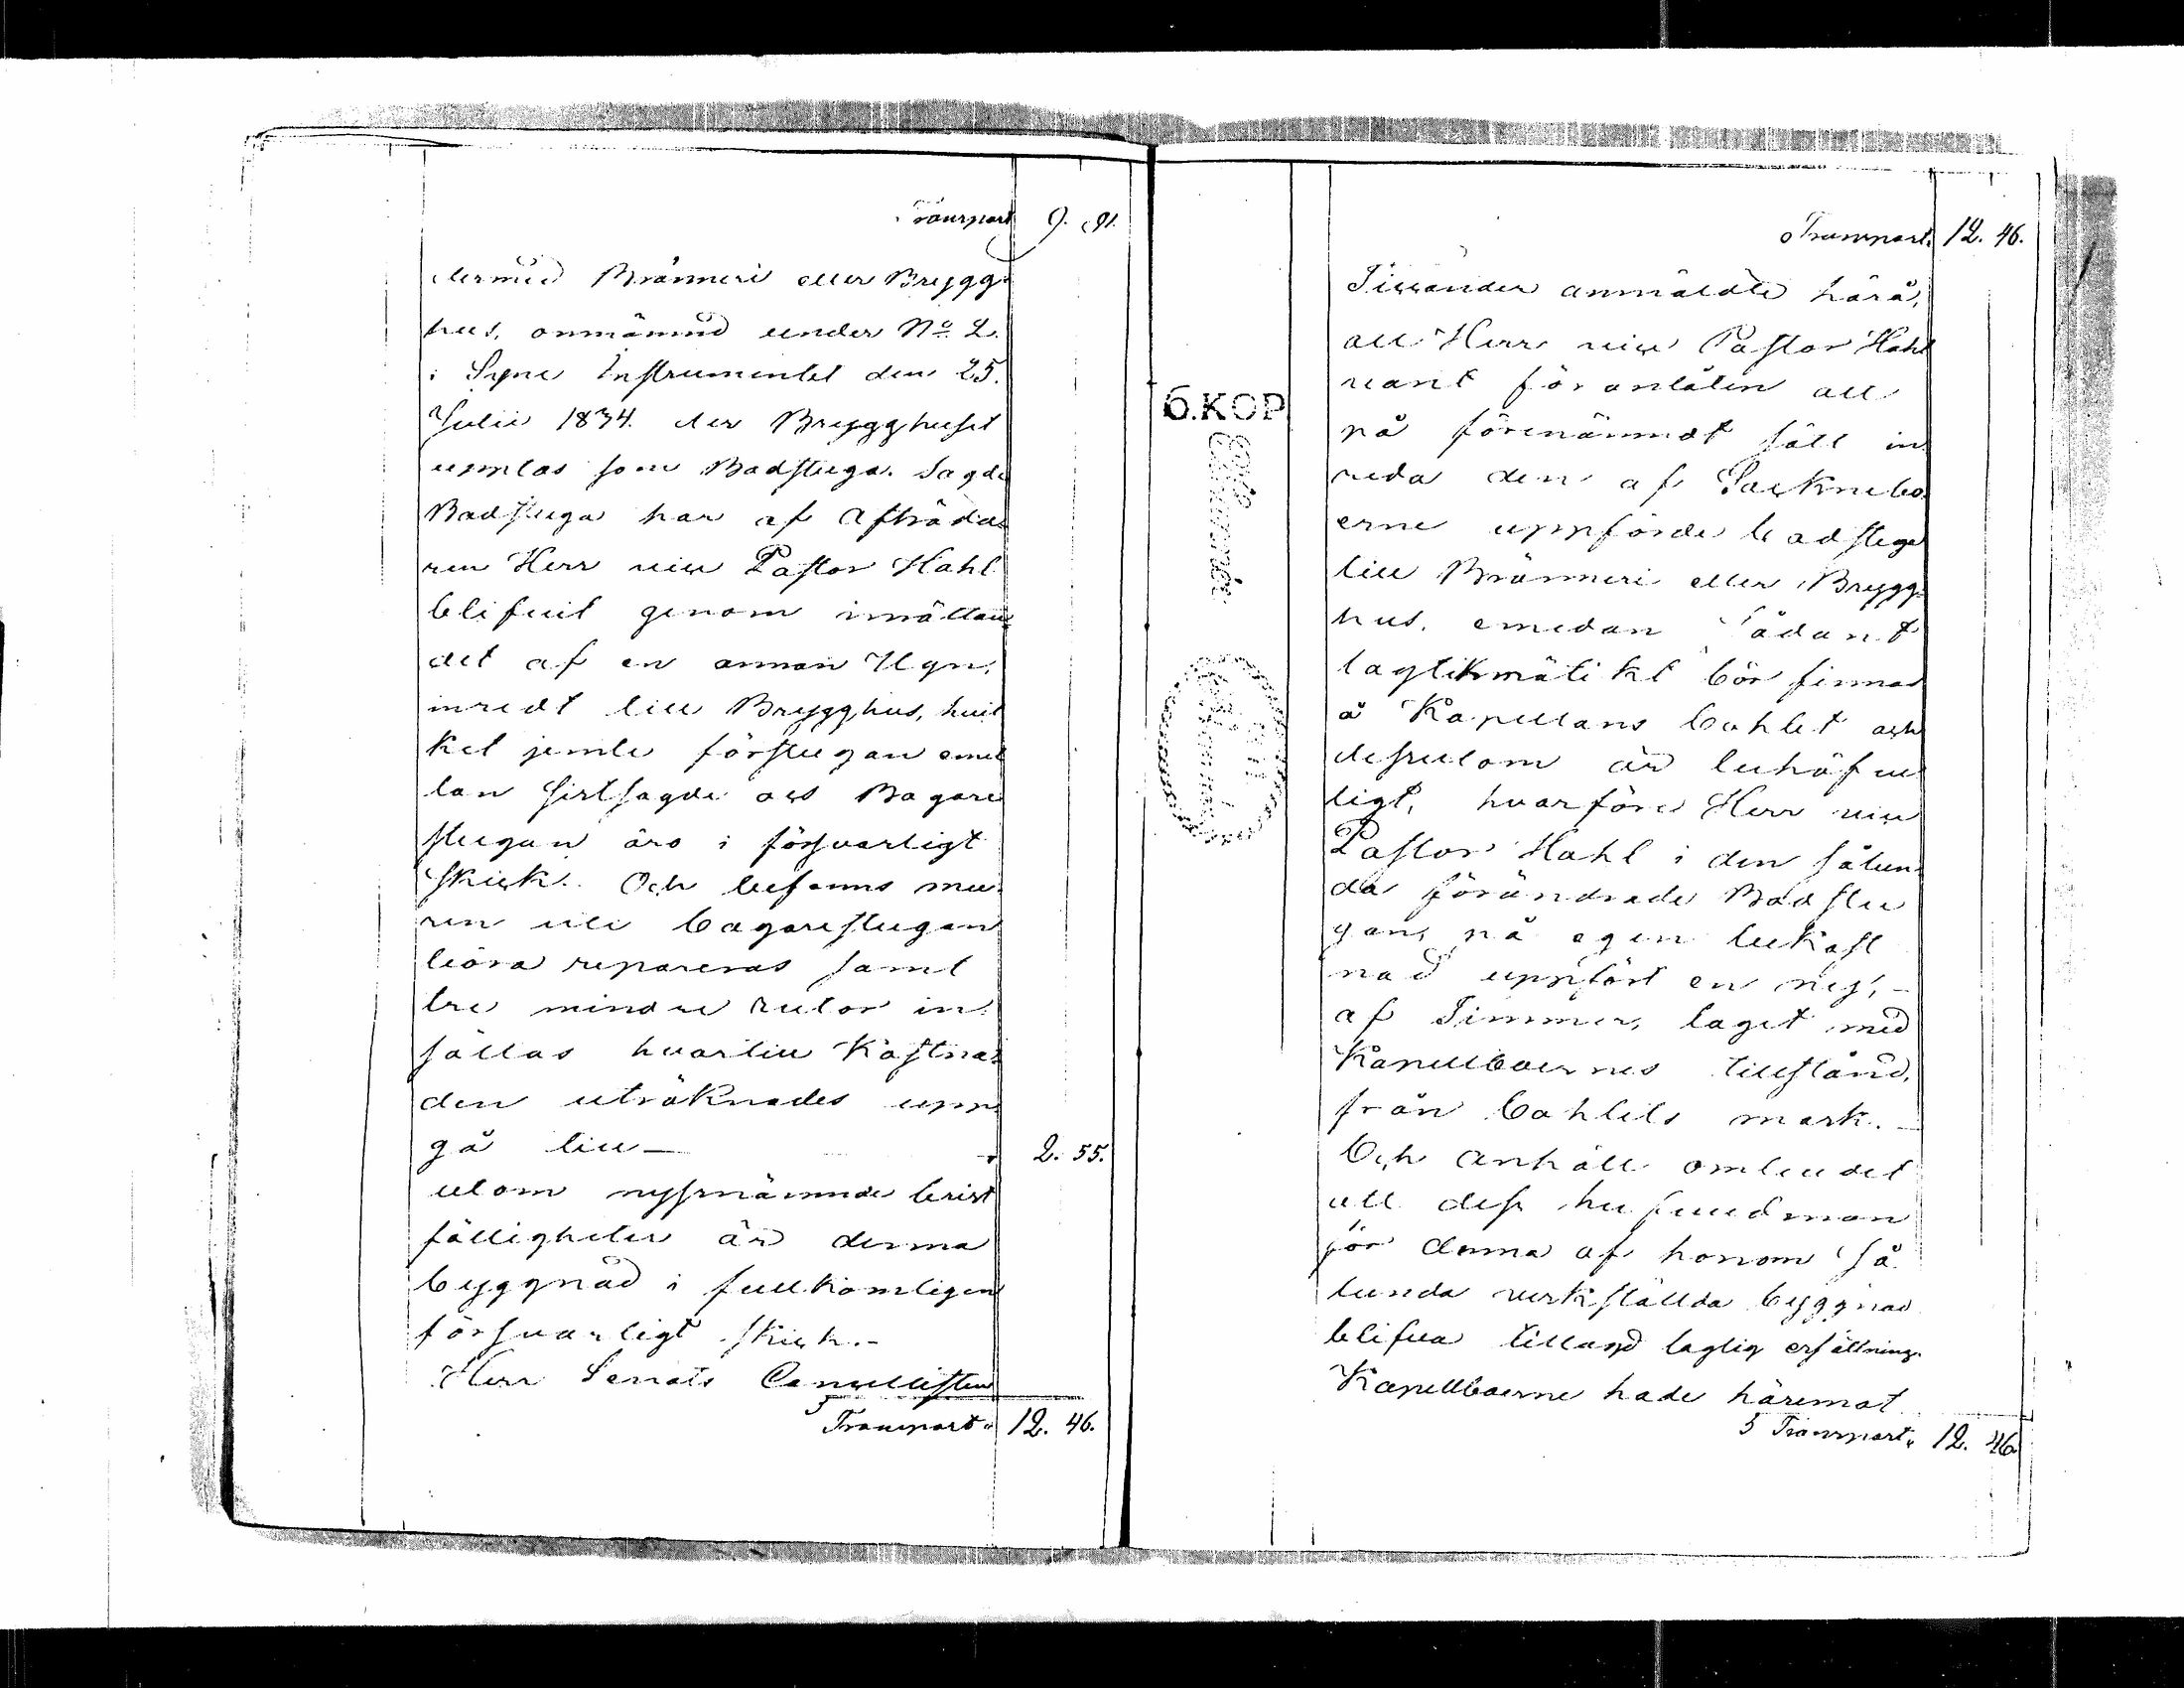 Transport 9. 91.
dermed Bränneri eller Brygg-
hus, omnämnd under No 2.
i Syne Instrumentet den 25.
Julii 1834. der Brygghuset
upptas som Badstuga. Sagde
Badstuga har af Afträda-
ren Herr vice Pastor Hahl
blifvit genom insättan-
det af en annan Ugn,
inredt till Brygghus, hvil-
ket jemte förstugan emel-
lan sistsagde och Bagare
stugan äro i försvarligt
skick. Och befanns mu-
ren uti bagarestugan
böra repareras samt
tre mindre rutor in-
sättas hvartill Kostna-
den uträknades upp-
gå till — 2. 55.
utom nyssnämnde brist-
fälligheter är denna
byggnad i fullkomligen
försvarligt skick.-
Herr Senats Cancellisten
Transport 12. 46.
Transport. 12. 46.
Tissander anmälde härå,
att Herr vice Pastor Hahl
varit föranlåten att
på förenämndt sätt in-
reda den af Socknebo-
erne uppförde badstuga
till Bränneri eller Brygg-
hus, emedan sådant
laglikmätikt bör finnas
å Kapellans bohlet och
dessutom är behöfve-
ligt, hvarföre Herr vice
Pastor Hahl i den sålun-
da förändrade Badstu-
gan, på egen bekost-
nad uppfört en ny, -
af Timmer, taget med
Kapellboernes tillstånd,
från bohlets mark. -
Och anhöll ombudet
att dess hufvudman
för denna af honom så-
lunda verkställda byggnad
blifva tillagd laglig ersättning.
Kapellboerne hade häremot
Transport. 12. 46.
6.KOP